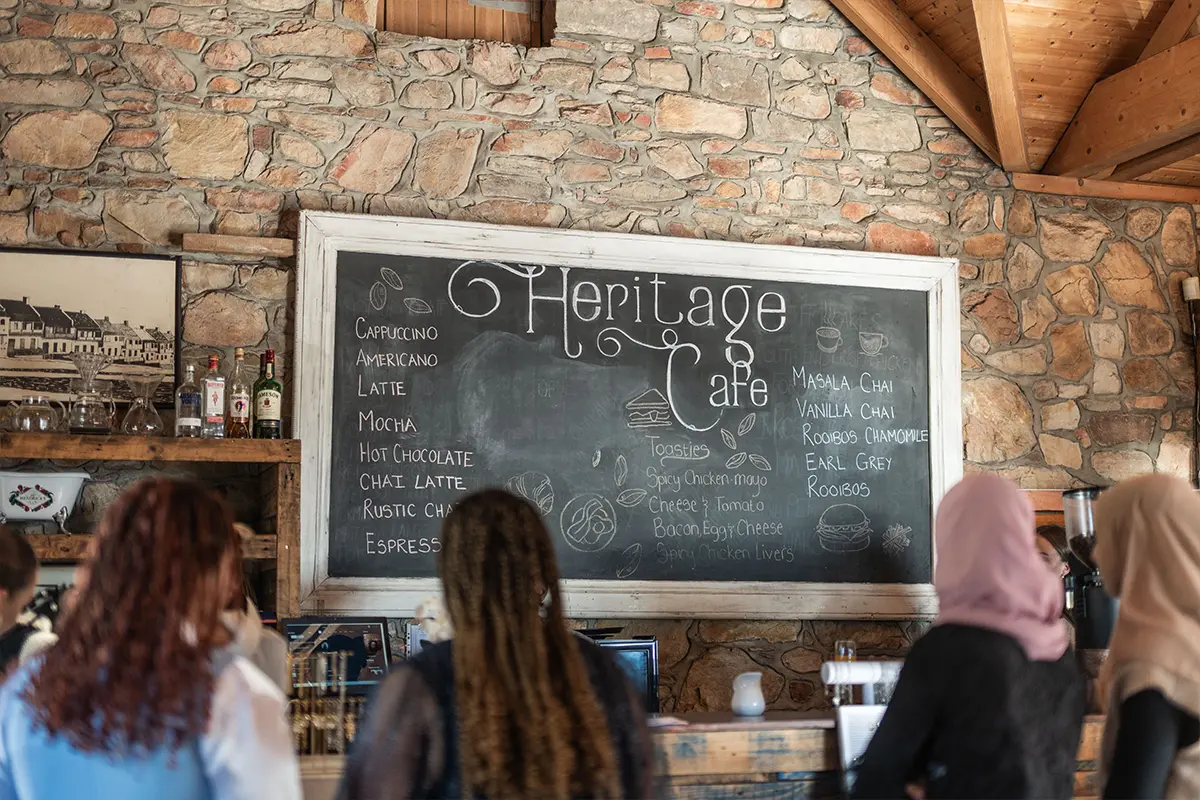 Heritage
Cafe
CAPPUCCINO
AMERICANO
LATTE
MOCHA
HOT CHOCOLATE
CHAI LATTE
RUSTIC CHA
ESPRESS
Toasties
Spicy Chicken mayo
Cheese & Tomato
Bacon, Egg & Cheese
Spicy Chicken Livers
MASALA CHAI
VANILLA CHAI
ROOIBOS CHAMOMILE
EARL GREY
ROOIBOS
JAMESON
HENDRICK'S